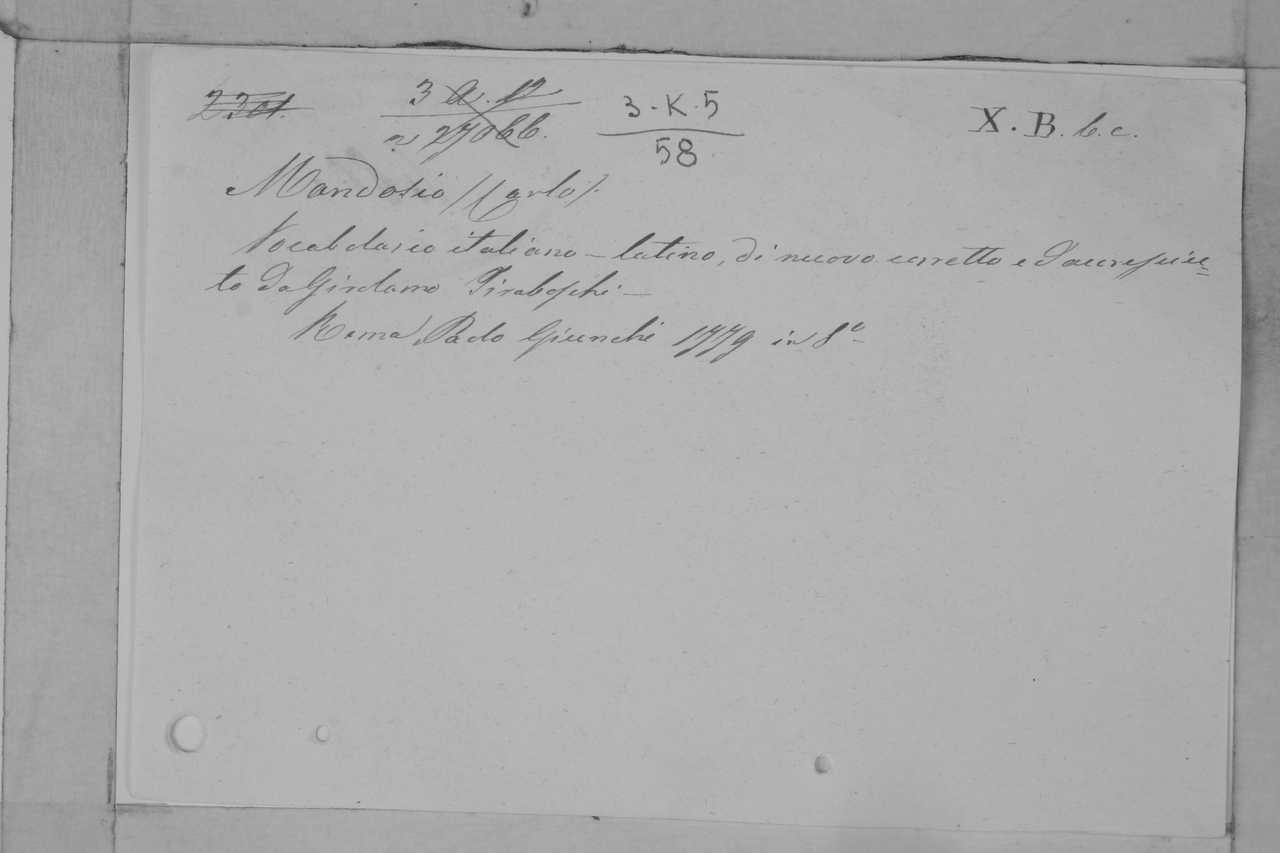 3 a. 12 3-K-5 X. B. b. c.
n 270bb. 58
Mandosio (Carlo).
Vocabolario italiano - latino, di nuovo corretto e d'accresciu=
to da Girolamo Tiraboschi -
Roma, Paolo Giunchi 1779 in 8°-